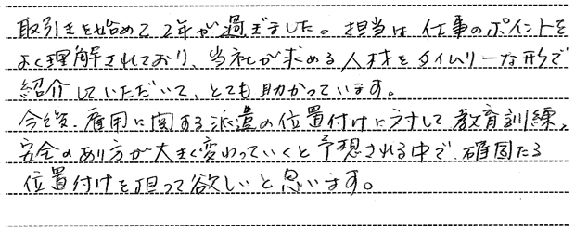 取引きを始めて2年が過ぎました。担当は仕事のポイントを
よく理解されており、当社が求める人材をタイムリーな形で
紹介していただいて、とても助かっています。
今後、雇用に関する派遣の位置付けに対して教育訓練、
安全のあり方が大きく変わっていくと予想される中で、確固たる
位置付けを担って欲しいと思います。